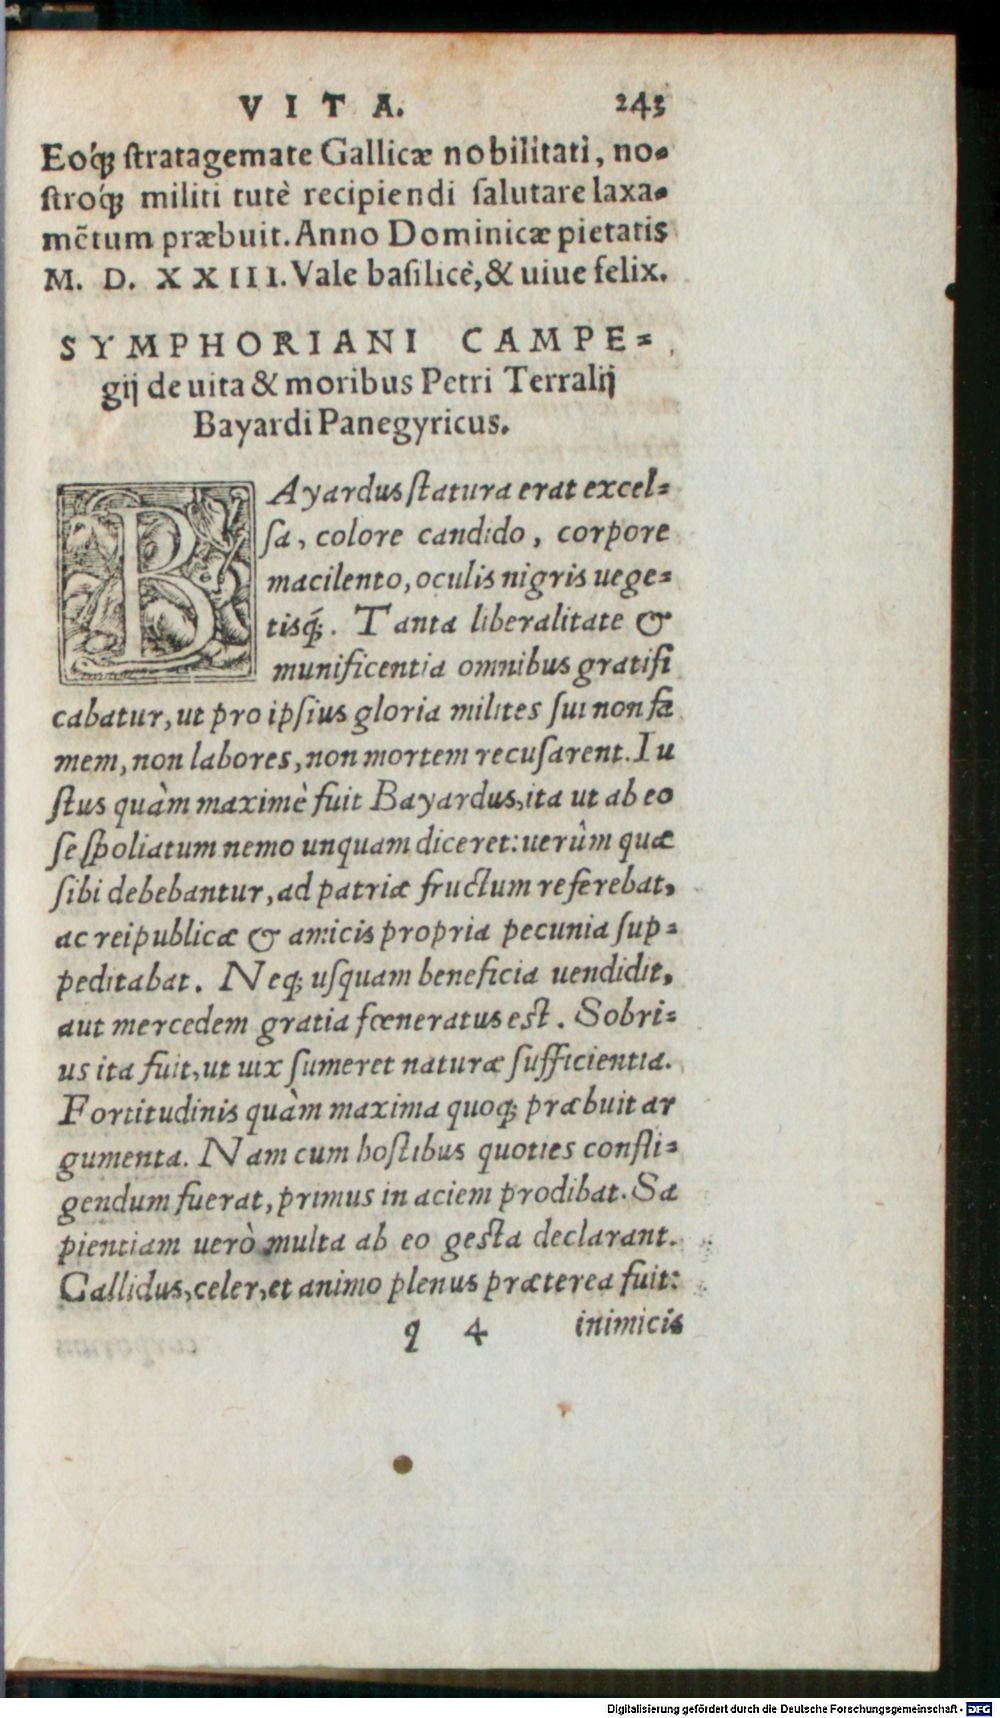 VITA. 243
Eoq́; stratagemate Gallicæ nobilitati, no-
stroq́; militi tutè recipiendi salutare laxa-
mẽtum præbuit. Anno Dominicæ pietatis
M. D. XXIII. Vale basilicè, & uiue felix.
SYMPHORIANI CAMPE=
gij de uita & moribus Petri Terralij
Bayardi Panegyricus.
BAyardus statura erat excel=
sa, colore candido, corpore
macilento, oculis nigris uege=
tisq́;. Tanta liberalitate &
munificentia omnibus gratifi
cabatur, ut pro ipsius gloria milites sui non fa
mem, non labores, non mortem recusarent. Iu
stus quàm maximè fuit Bayardus, ita ut ab eo
se spoliatum nemo unquam diceret: uerùm quæ
sibi debebantur, ad patriæ fructum referebat,
ac reipublicæ & amicis propria pecunia sup=
peditabat. Neq; usquam beneficia uendidit,
aut mercedem gratia fœneratus est. Sobri=
us ita fuit, ut uix sumeret naturæ sufficientia.
Fortitudinis quàm maxima quoq; præbuit ar
gumenta. Nam cum hostibus quoties confli=
gendum fuerat, primus in aciem prodibat. Sa
pientiam uerò multa ab eo gesta declarant.
Callidus, celer, et animo plenus præterea fuit:
q 4 inimicis
Digitalisierung gefördert durch die Deutsche Forschungsgemeinschaft - DFG